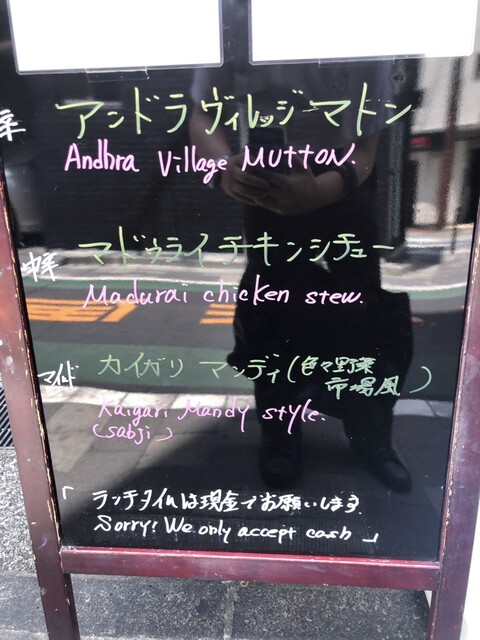 辛 アンドラヴィレッジマトン
Andhra Village MUTTON.
中辛 マドゥライチキンシチュー
Madurai chicken stew.
マイルド カイガリ マンディ(色々野菜
市場風)
Kaigari Mandy style.
(sabji)
「ランチタイムは現金でお願いします
Sorry! We only accept cash」